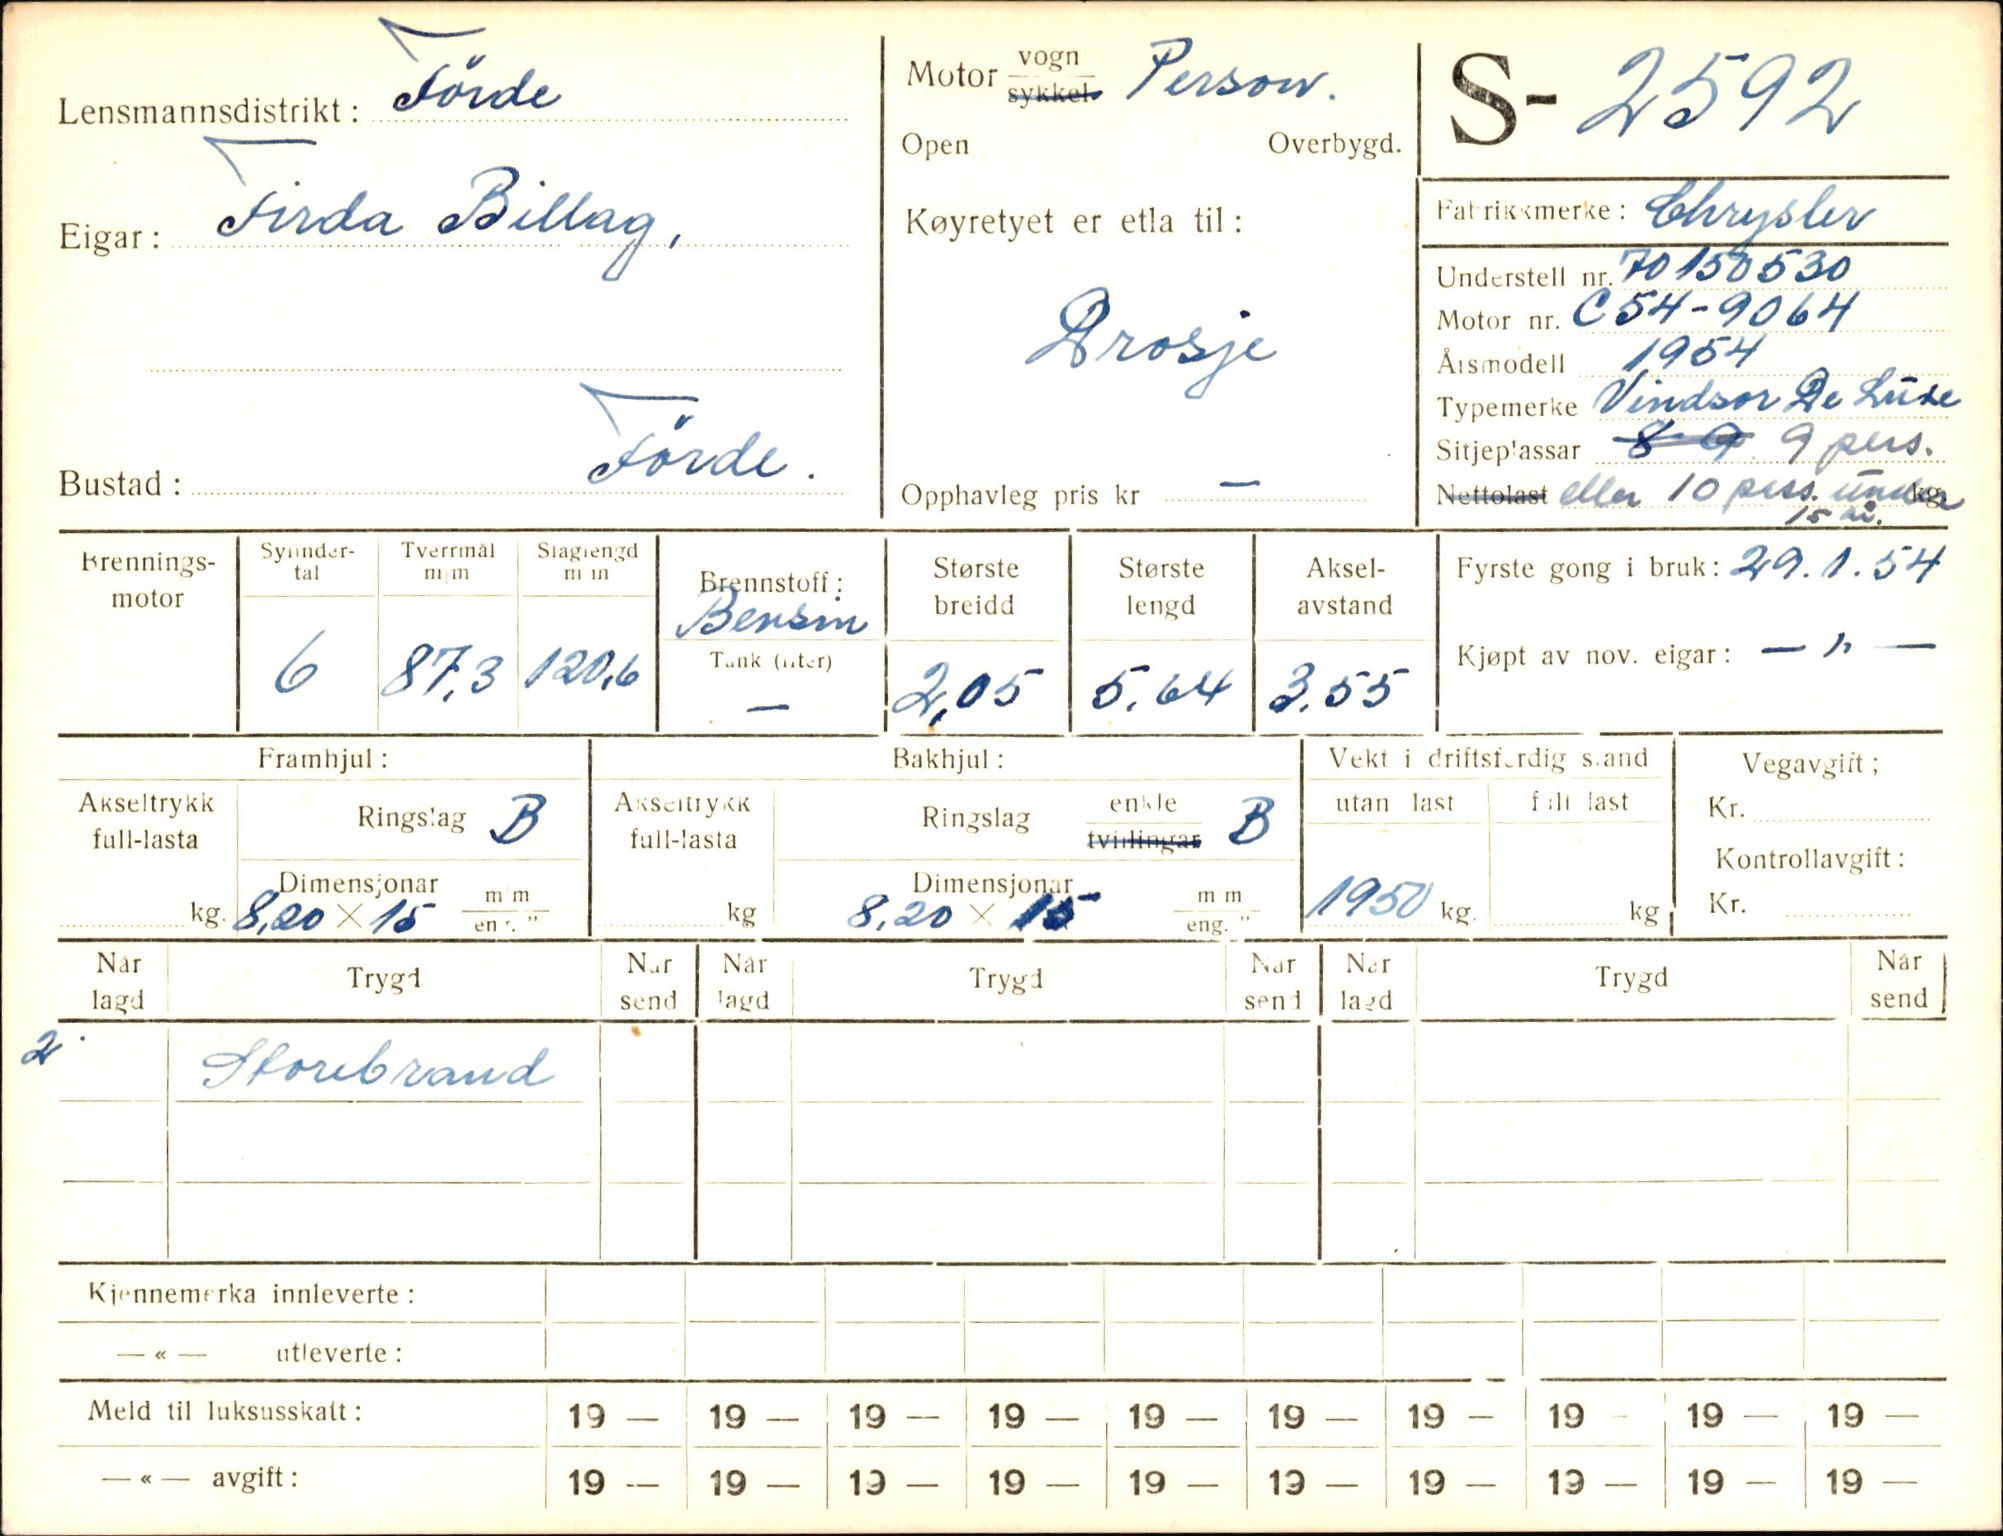 Lensmannsdistrikt: Förde
Eigar: Firda Billag,
Bustad: Förde.
Motor vogn sykkel. Person.
Open Overbygd.
Køyretyet er etla til:
Drosje
Opphavleg pris kr —
S- 2592
Fabrikkmerke: Chrysler
Understell nr. 70150530
Motor nr. C54-9064
Årsmodell 1954
Typemerke Vindsor De Luxe
Sitjeplassar 8-9 9 pers.
Nettolast eller 10 pers. under kg.
15 år.
Brennings-
motor
Sylinder-
tal
6
Tverrmål
m/m
87,3
Slaglengd
m/m
120,6
Brennstoff:
Bensin
Tank (liter)
—
Største
breidd
2,05
Største
lengd
5.64
Aksel-
avstand
3.55
Fyrste gong i bruk: 29.1.54
Kjøpt av nov. eigar: — " —
Framhjul:
Akseltrykk
full-lasta
kg.
Ringslag B
Dimensjonar
8,20 × 15 m/m eng. "
Bakhjul:
Akseltrykk
full-lasta
kg
Ringslag enkle tvillingar B
Dimensjonar
8,20 × 15 m/m eng. "
Vekt i driftsferdig stand
utan last
1950 kg.
full last
kg
Vegavgift;
Kr.
Kontrollavgift:
Kr.
Når
lagd
Trygd
Når
send
Når
lagd
Trygd
Når
send
Når
lagd
Trygd
Når
send
2. Storebrand
Kjennemerka innleverte:
— « — utleverte:
Meld til luksusskatt: 19 — 19 — 19 — 19 — 19 — 19 — 19 — 19 — 19 — 19 —
— « — avgift: 19 — 19 — 19 — 19 — 19 — 19 — 19 — 19 — 19 — 19 —